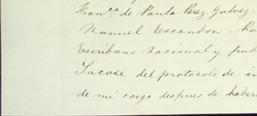 Fran.ca de Paula Perez Galvez.
Manuel Escandon.
Escribano nacional y pub
Sacose del protocolo de in
de mi cargo despues de haber